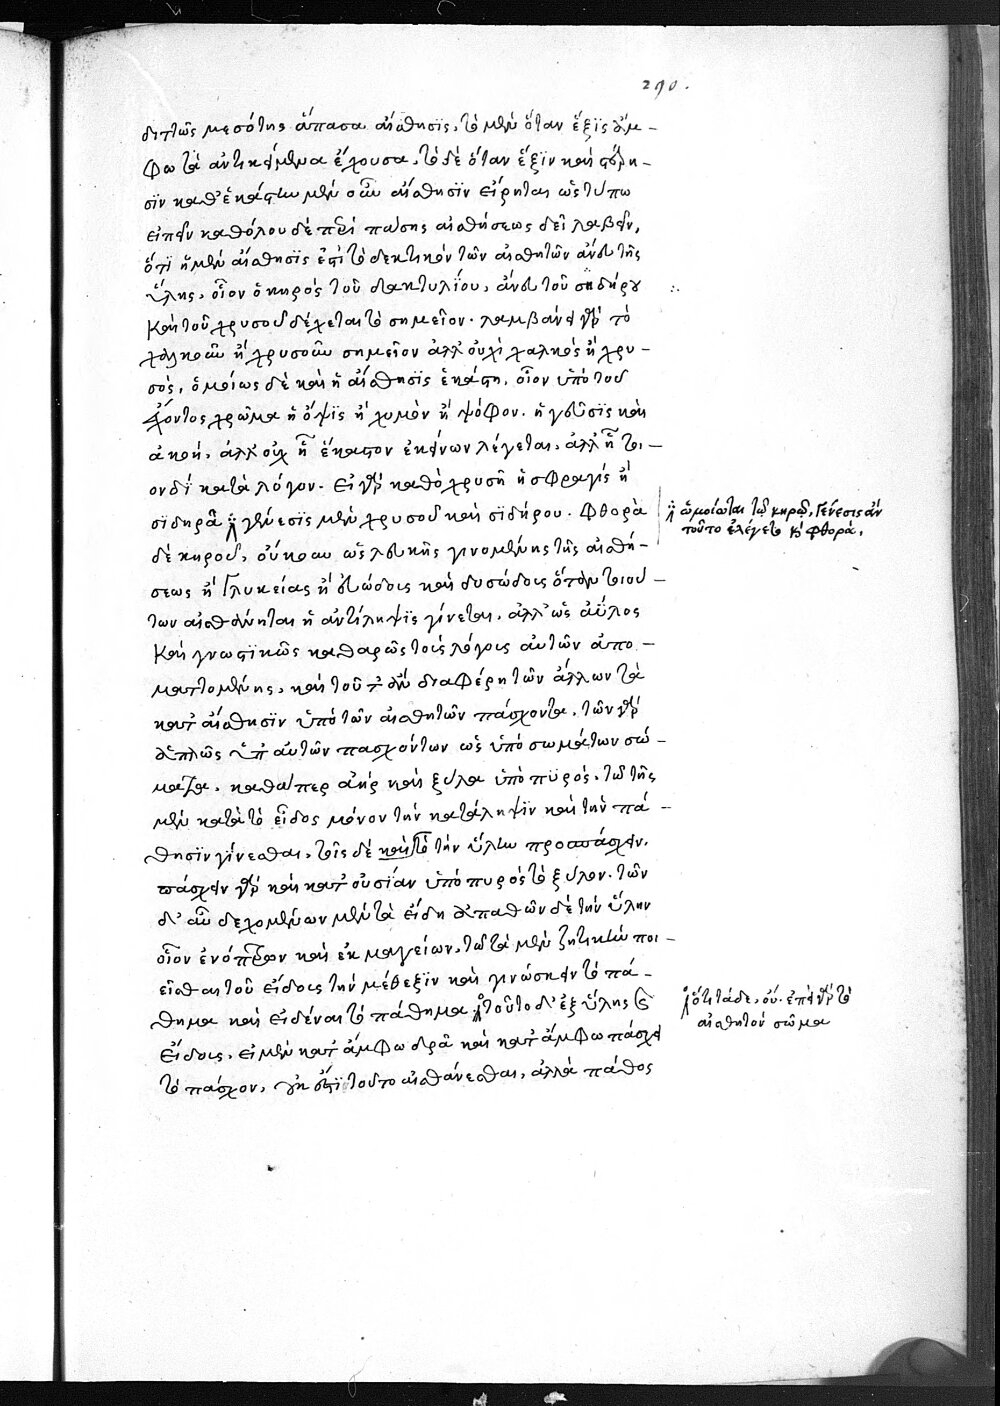 290.
διττῶς μεσότης ἅπασα αἴσθησϊς, τὸ μὲν ὅταν ἕξϊς ἄμ-
φω τὰ ἀντικείμενα ἔχουσα, τὸ δὲ ὅταν ἕξϊν καὶ στέρη-
σϊν καθ' ἑκάστην μὲν οὖν αἴσθησϊν εἴρηται ὡς τύπω
εἰπεῖν καθόλου δὲ περὶ πάσης αἰσθήσεως δεῖ λαβεῖν,
ὅτϊ ἡ μὲν αἴσθησϊς ἐστὶ τὸ δεκτικὸν τῶν αἰσθητῶν ἄνευ τῆς
ὕλης, οἷον ὁ κηρὸς τοῦ δακτυλίου, ἄνευ τοῦ σϊδήρου
καὶ τοῦ χρυσοῦ δέχεται τὸ σημεῖον. λαμβάνει γὰρ τὸ
χαλκοῦν ἢ χρυσοῦν σημεῖον ἀλλ' οὐχὶ χαλκὸς ἢ χρυ-
σὸς, ὁμοίως δὲ καὶ ἡ αἴσθησϊς ἑκάστη, οἷον ὑπὸ τοῦ
ἔχοντος χρῶμα ἡ ὄψϊς ἢ χυμὸν ἢ ψόφον. ἡ γεῦσϊς καὶ
ἀκοή, ἀλλ' οὐχ ἧ ἕκαστον ἐκείνων λέγεται, ἀλλ' ἧ τοι-
ονδὶ κατὰ λόγον. εἰ γὰρ καθὸ χρυσῆ ἡ σφραγὶς ἢ
σϊδηρᾶ γένεσϊς μὲν χρυσοῦ καὶ σϊδήρου. φθορὰ
δὲ κηροῦ, οὔκουν ὡς λευκῆς γινομένης τῆς αἰσθή-
σεως ἢ γλυκείας ἢ εὐώδους καὶ δυσώδους ὁπόταν τοιού
των αἰσθάνηται ἡ ἀντίληψϊς γίνεται, ἀλλ' ὡς ἀΰλος
καὶ γνωστϊκῶς καθαρῶς τοὺς λόγους αὐτῶν ἀπο-
ματτομένης, καὶ τοῦτ' ἂν διαφέρη τῶν ἄλλων τὰ
κατ' αἴσθησϊν ὑπὸ τῶν αἰσθητῶν πάσχοντα, τῶν γὰρ
ἁπλῶς ὑπ' αὐτῶν πασχόντων ὡς ὑπὸ σωμάτων σώ-
ματα, καθάπερ ἀὴρ καὶ ξύλα ὑπὸ πϋρὸς, τῶ τῆς
μὲν κατὰ τὸ εἶδος μόνον τὴν κατάληψϊν καὶ τὴν πά-
θησϊν γίνεσθαι, τοῖς δὲ καὶ τὸ τὴν ὕλην προσπάσχειν.
πάσχειν γὰρ καὶ κατ' οὐσίαν ὑπὸ πυρὸς τὸ ξύλον. τῶν
δ' αὖ δεχομένων μὲν τὰ εἴδη ἀπαθῶν δὲ τὴν ὕλην
οἷον ἐνόπτρων καὶ ἐκμαγείων, τῶ τὰ μὲν ζητικὴν ποι-
εῖσθαι τοῦ εἴδους τὴν μέθεξϊν καὶ γινώσκειν τὸ πά-
θημα καὶ εἰδέναι τὸ πάθημα τοῦτο δ' ἐξ ὕλης καὶ
εἴδους, εἰ μὲν κατ' ἄμφω δρᾶ καὶ κατ' ἄμφω πάσχει
τὸ πάσχον, οὐκ ἔστϊ τοῦτο αἰσθάνεσθαι, ἀλλὰ πάθος
ἢ ὡμοίωται τῷ κηρῷ, γένεσις ἂν
τοῦτο ἐλέγετο καὶ φθορά.
ὅτι τάδε, οὐ. ἐπεὶ γὰρ τὸ
αἰσθητὸν σῶμα